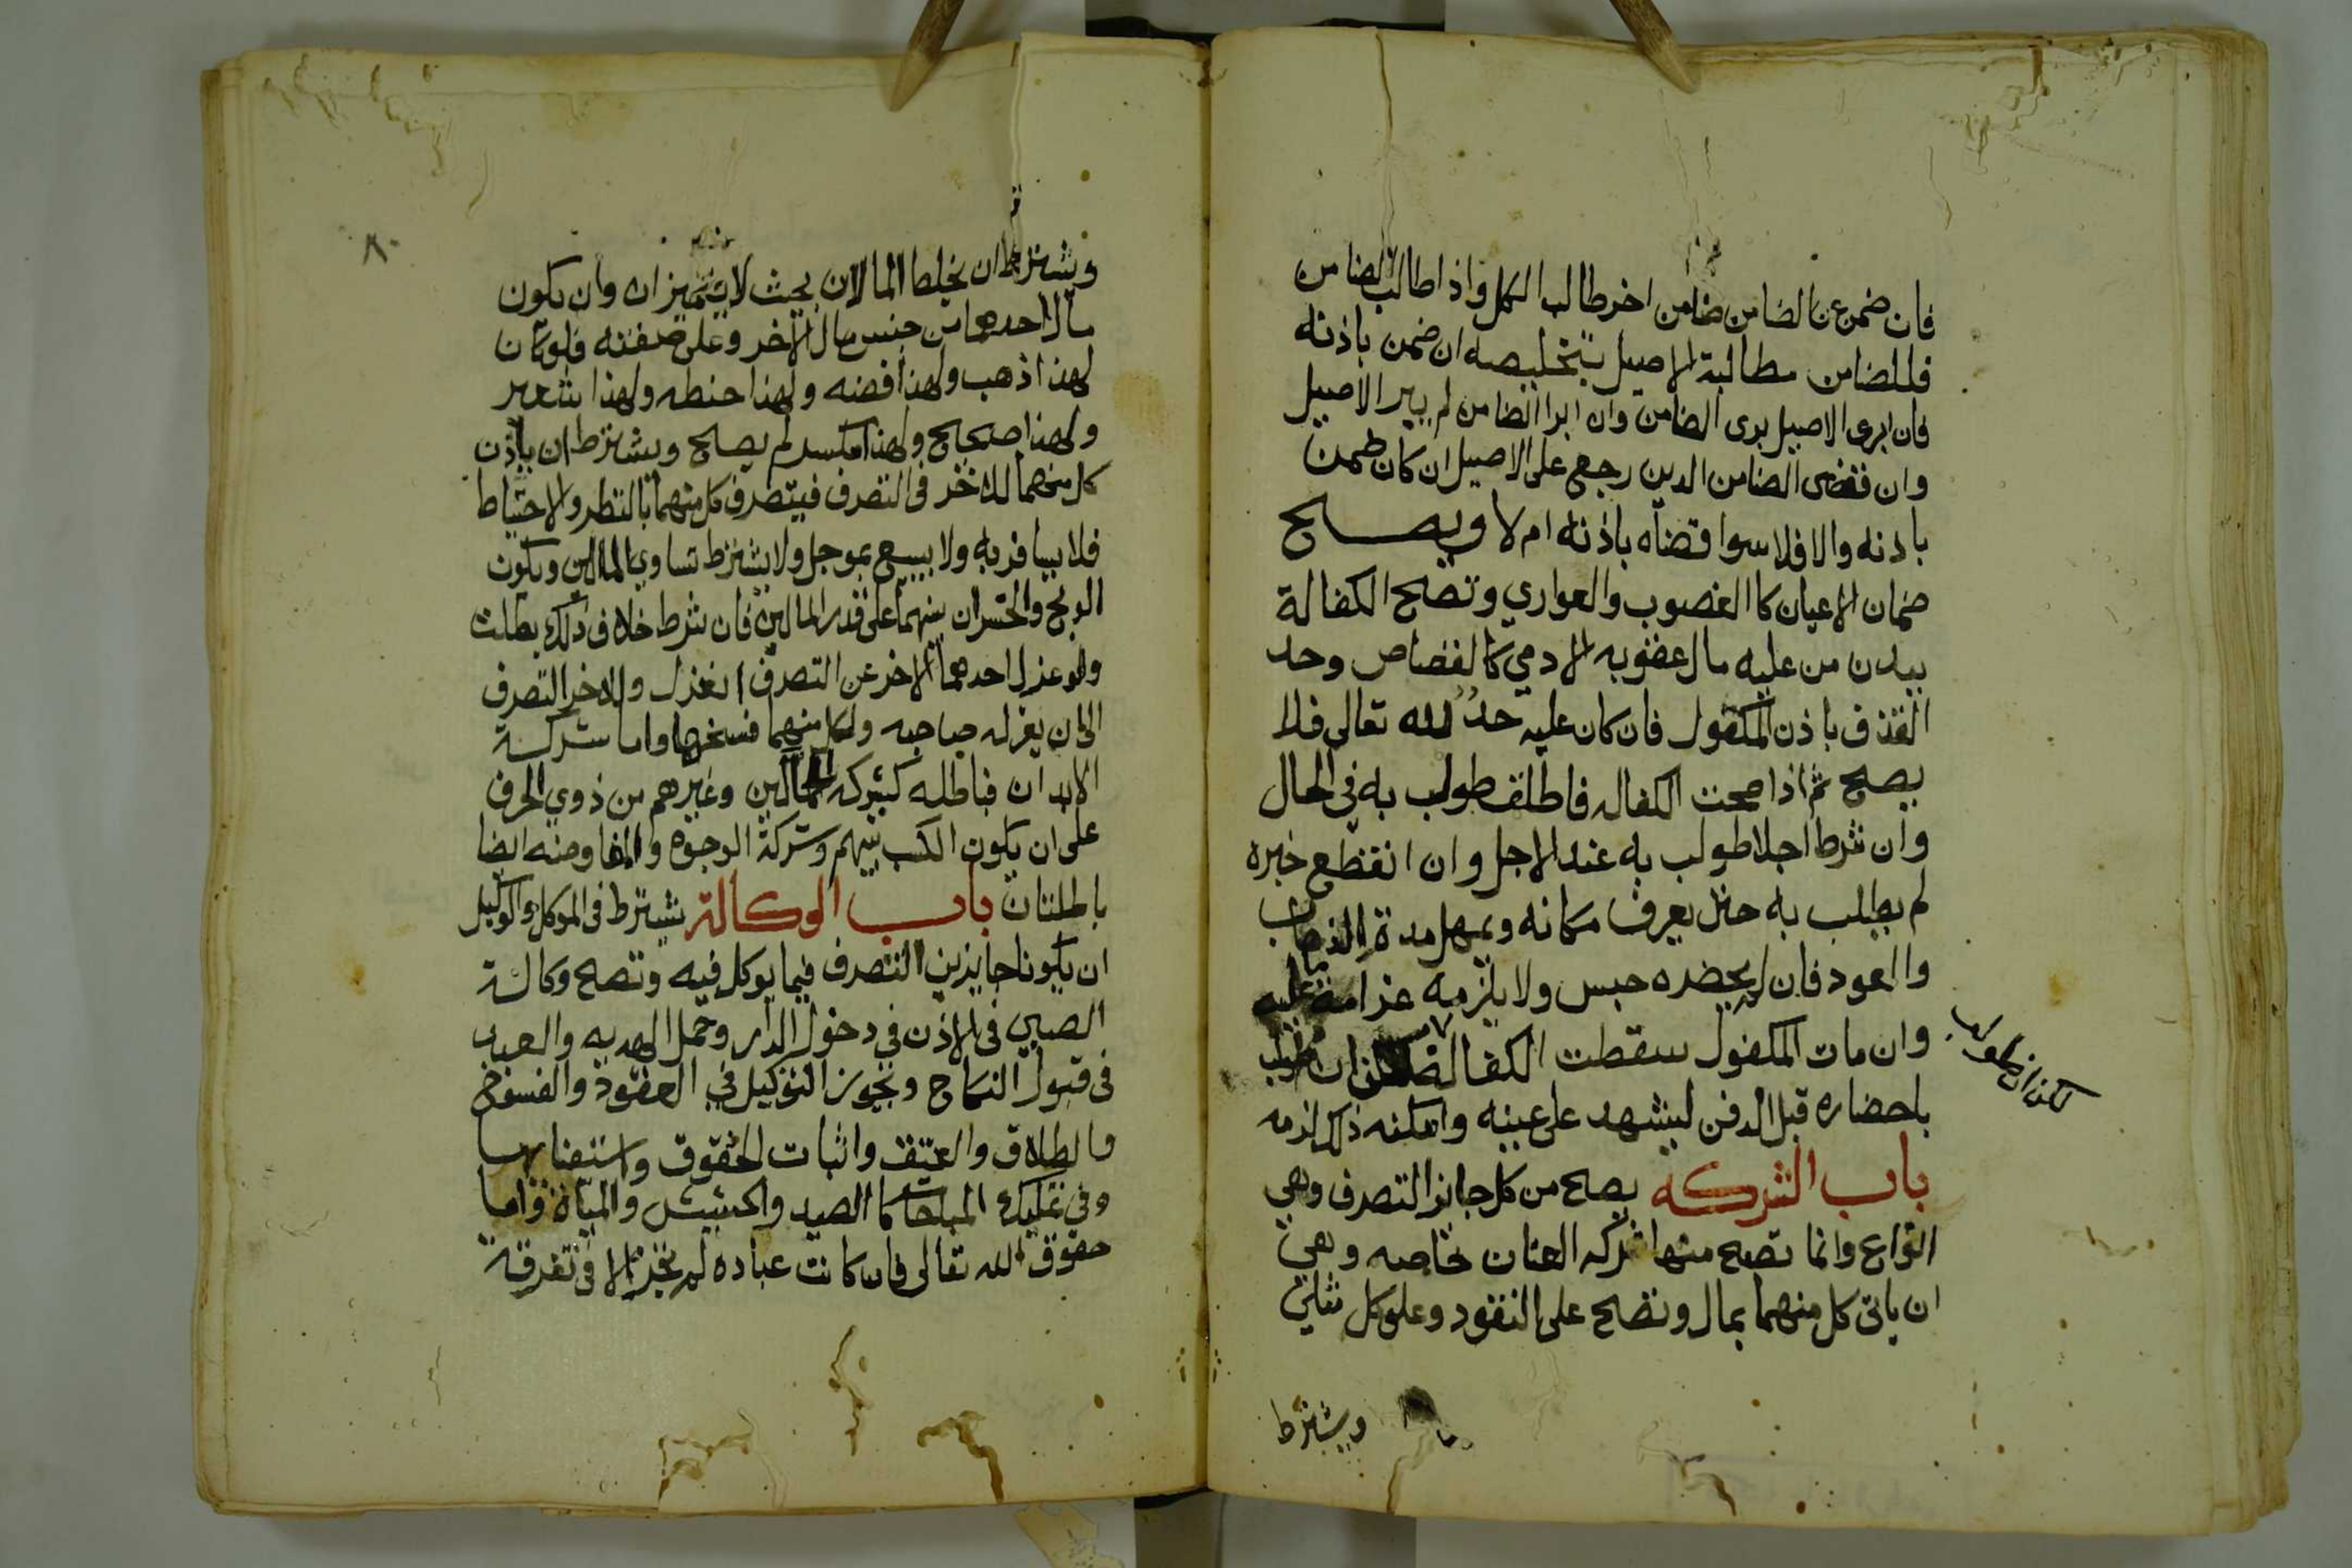 فان ضمن عن الضامن ضامن اخر طالب الكل واذا طالب الضامن
فللضامن مطالبة الاصيل بتخليصه ان ضمن باذنه
فان ابرى الاصيل برى الضامن وان ابرا الضامن لم يبر الاصيل
وان قضى الضامن الدين رجع على الاصيل ان كان ضمن
باذنه والا فلا سوا قضاه باذنه ام لا ويصح
ضمان الاعيان كالغصوب والعواري وتصح الكفالة
ببدن من عليه مال او عقوبه لادمي كالقصاص وحد
القذف باذن المكفول فان كان عليه حد لله تعالى فلا
يصح ثم اذا صحت الكفاله فاطلق طولب به في الحال
وان شرط اجلا طولب به عند الاجل وان انقطع خبره
لم يطلب به حتى يعرف مكانه ويمهل مدة الذهاب
والعود فان لم يحضره حبس ولا يلزمه غرامة ما عليه
وان مات المكفول سقطت الكفالة لكن ان طولب
لكن ان طولب
باحضاره قبل الدفن ليشهد على عينه وامكنه ذلك لزمه
باب الشركه يصح من كل جايز التصرف وهي
انواع وانما تصح منها شركه العنان خاصه وهي
ان ياتى كل منهما بمال وتصح على النقود وعلى كل مثلي
ويشترط
٨٠
ويشترط ان يخلطا المالان بحيث لا يتميزان وان يكون
مال احدهما من جنس مال الاخر وعلى صفته فلو كان
لهذا ذهب ولهذا فضه ولهذا حنطه ولهذا شعير
ولهذا صحيح ولهذا مكسر لم يصح ويشترط ان ياذن
كل منهما للاخر فى التصرف فيتصرف كل منهما بالنظر والاحتياط
فلا يسافر به ولا يبيع بموجل ولا يشترط تساوي المالين ويكون
الربح والخسران بينهما على قدر المالين فان شرط خلاف ذلك بطلت
ولو عزل احدهما الاخر عن التصرف انعزل وللاخر التصرف
الى ان يعزله صاحبه ولكل منهما فسخها واما شركة
الابدان فباطله كشركه الحمالين وغيرهم من ذوي الحرف
على ان يكون الكسب بينهم وشركة الوجوه والمفاوضه ايضا
باطلتان باب الوكالة يشترط فى الموكل والوكيل
ان يكونا جايزين التصرف فيما يوكل فيه وتصح وكالة
الصبي فى الاذن في دخول الدار وحمل الهديه والعبد
فى قبول النكاح ويجوز التوكيل في العقود والفسوخ
والطلاق والعتق واثبات الحقوق واستيفايها
وفي تمليك المباحات كالصيد والحشيش والمياة واما
حقوق الله تعالى فان كانت عباده لم يجز الا فى تفرقة